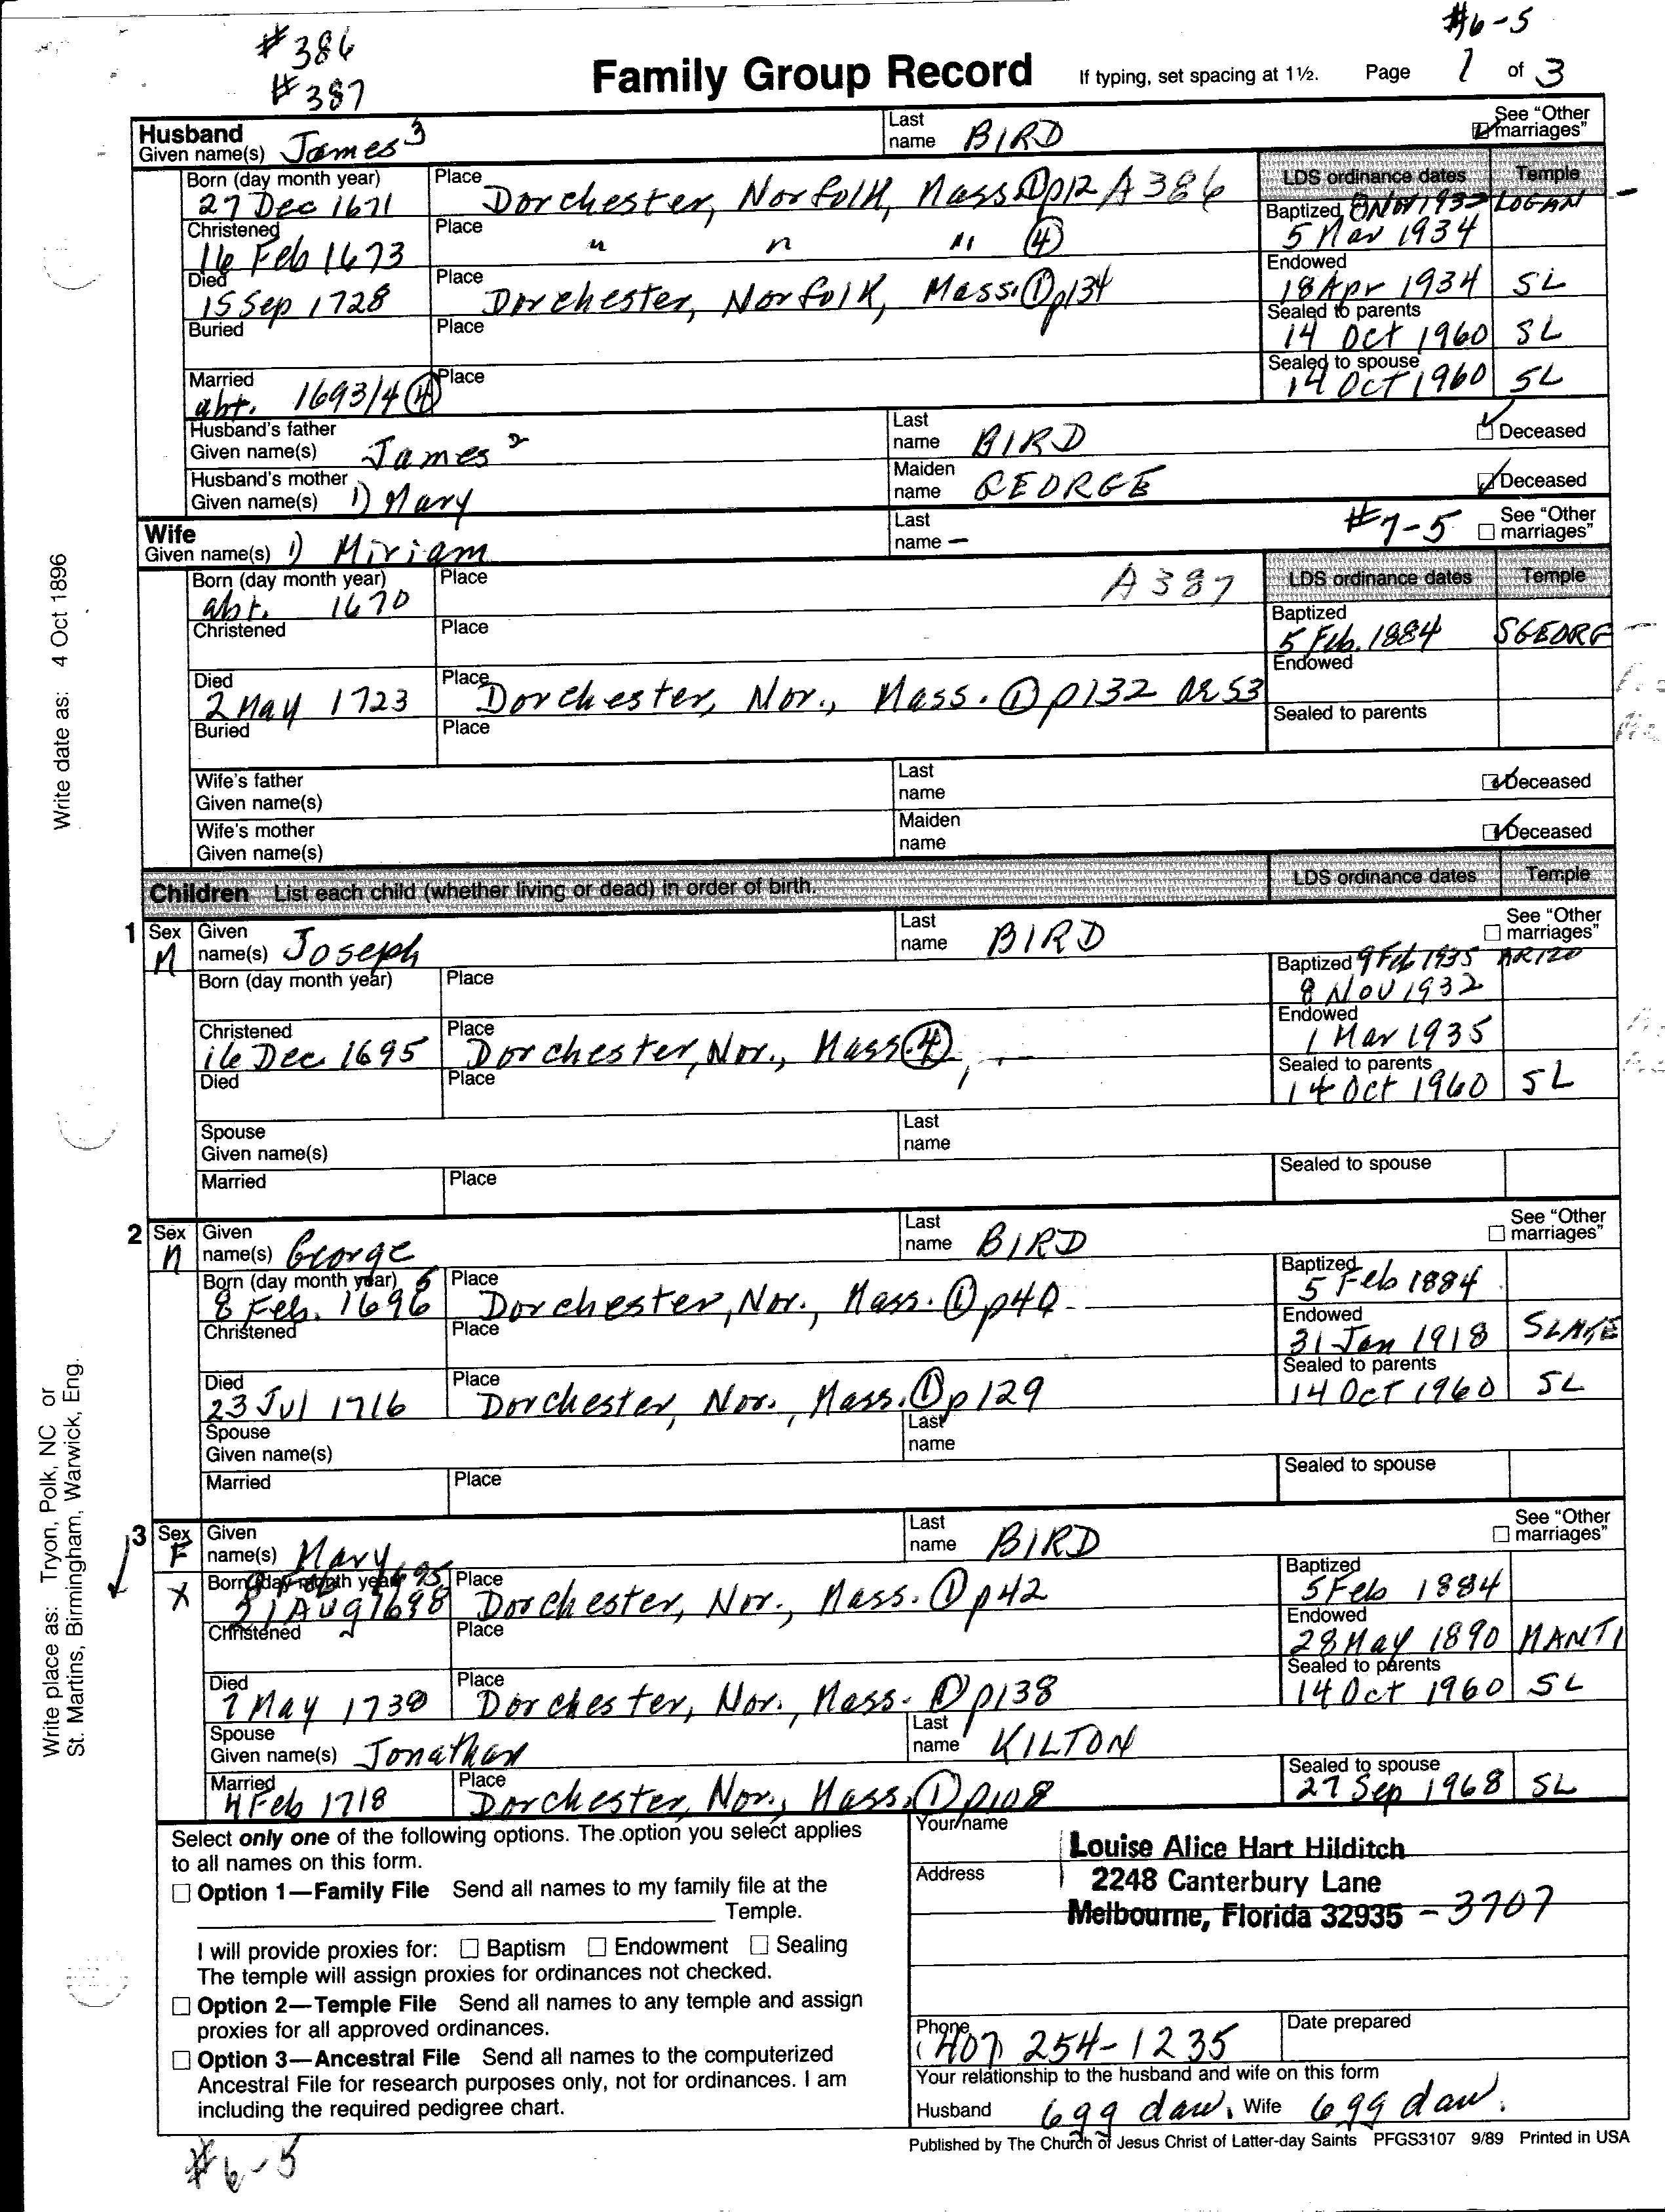 #386
#387
#6-5
Family Group Record
If typing, set spacing at 1½.
Page 1 of 3
Husband
Given name(s) James 3
Last name BIRD
See "Other marriages"
Born (day month year) 27 Dec 1671
Place Dorchester, Norfolk, Mass ① p12 A 386
LDS ordinance dates Temple
Baptized 8 Nov 1932 LOGAN
5 Mar 1934
Christened 16 Feb 1673
Place " " " ④
Endowed 18 Apr 1934 SL
Died 15 Sep 1728
Place Dorchester, Norfolk, Mass. ① p134
Sealed to parents 14 Oct 1960 SL
Buried
Place
Sealed to spouse 14 OCT 1960 SL
Married abt. 1693/4 ④
Place
Husband's father
Given name(s) James 2
Last name BIRD
Deceased
Husband's mother
Given name(s) 1) Mary
Maiden name GEORGE
Deceased
Wife
Given name(s) 1) Miriam
Last name —
#7-5
See "Other marriages"
Born (day month year) abt. 1670
Place
A 387
LDS ordinance dates Temple
Christened
Place
Baptized 5 Feb. 1884 SGEORG
Endowed
Died 2 May 1723
Place Dorchester, Nor., Mass. ① p132
Sealed to parents
Buried
Place
Wife's father
Given name(s)
Last name
Deceased
Wife's mother
Given name(s)
Maiden name
Deceased
Children List each child (whether living or dead) in order of birth.
LDS ordinance dates Temple
1 Sex M
Given name(s) Joseph
Last name BIRD
See "Other marriages"
Born (day month year)
Place
Baptized 9 Feb 1935 ARIZO
8 NOV 1932
Christened 16 Dec 1695
Place Dorchester, Nor., Mass. ④
Endowed 1 Mar 1935
Died
Place
Sealed to parents 14 Oct 1960 SL
Spouse
Given name(s)
Last name
Married
Place
Sealed to spouse
2 Sex M
Given name(s) George
Last name BIRD
See "Other marriages"
Born (day month year) 8 Feb. 1696
Place Dorchester, Nor., Mass. ① p40
Baptized 5 Feb 1884
Christened
Place
Endowed 31 Jan 1918 SLAKE
Died 23 Jul 1716
Place Dorchester, Nor., Mass. ① p129
Sealed to parents 14 OCT 1960 SL
Spouse
Given name(s)
Last name
Married
Place
Sealed to spouse
3 Sex F
X
Given name(s) Mary
Last name BIRD
See "Other marriages"
Born (day month year) 21 Aug 1698
Place Dorchester, Nor., Mass. ① p42
Baptized 5 Feb 1884
Christened
Place
Endowed 28 May 1890 MANTI
Died 7 May 1738
Place Dorchester, Nor., Mass. ① p138
Sealed to parents 14 Oct 1960 SL
Spouse
Given name(s) Jonathan
Last name KILTON
Married 4 Feb 1718
Place Dorchester, Nor., Mass. ① p108
Sealed to spouse 27 Sep 1968 SL
Select only one of the following options. The option you select applies
to all names on this form.
Option 1—Family File Send all names to my family file at the
Temple.
I will provide proxies for: Baptism Endowment Sealing
The temple will assign proxies for ordinances not checked.
Option 2—Temple File Send all names to any temple and assign
proxies for all approved ordinances.
Option 3—Ancestral File Send all names to the computerized
Ancestral File for research purposes only, not for ordinances. I am
including the required pedigree chart.
Your name Louise Alice Hart Hilditch
Address 2248 Canterbury Lane
Melbourne, Florida 32935 -3707
Phone (407) 254-1235
Date prepared
Your relationship to the husband and wife on this form
Husband 6 gg dau. Wife 6 gg dau.
Published by The Church of Jesus Christ of Latter-day Saints PFGS3107 9/89 Printed in USA
#6-5
Write date as: 4 Oct 1896
Write place as: Tryon, Polk, NC or
St. Martins, Birmingham, Warwick, Eng.